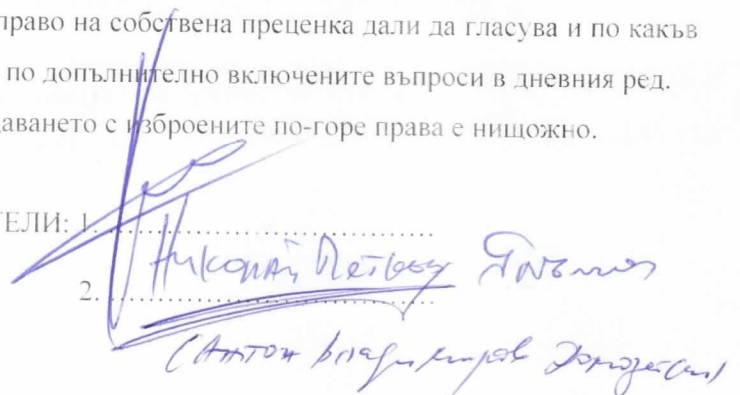 право на собствена преценка дали да гласува и по какъв
по допълнително включените въпроси в дневния ред.
даването с изброените по-горе права е нищожно.
ТЕЛИ: 1. ..................................
Николай Петков
2. ..................................
(Антон Владимиров